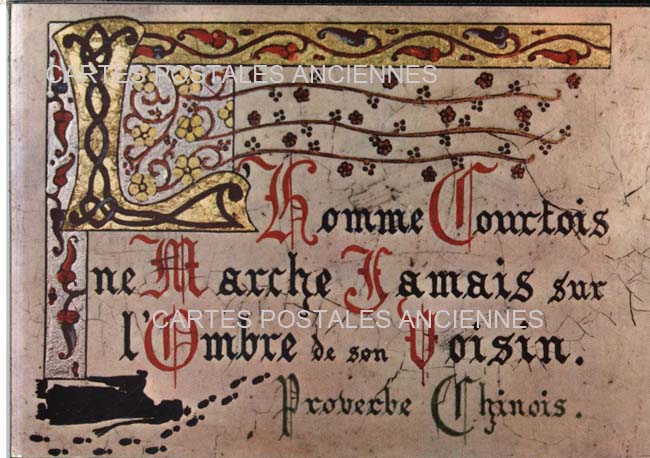 CARTES POSTALES ANCIENNES
L'Homme Courtois
ne Marche Jamais sur
CARTES POSTALES ANCIENNES
l'Ombre de son Voisin.
Proverbe Chinois.